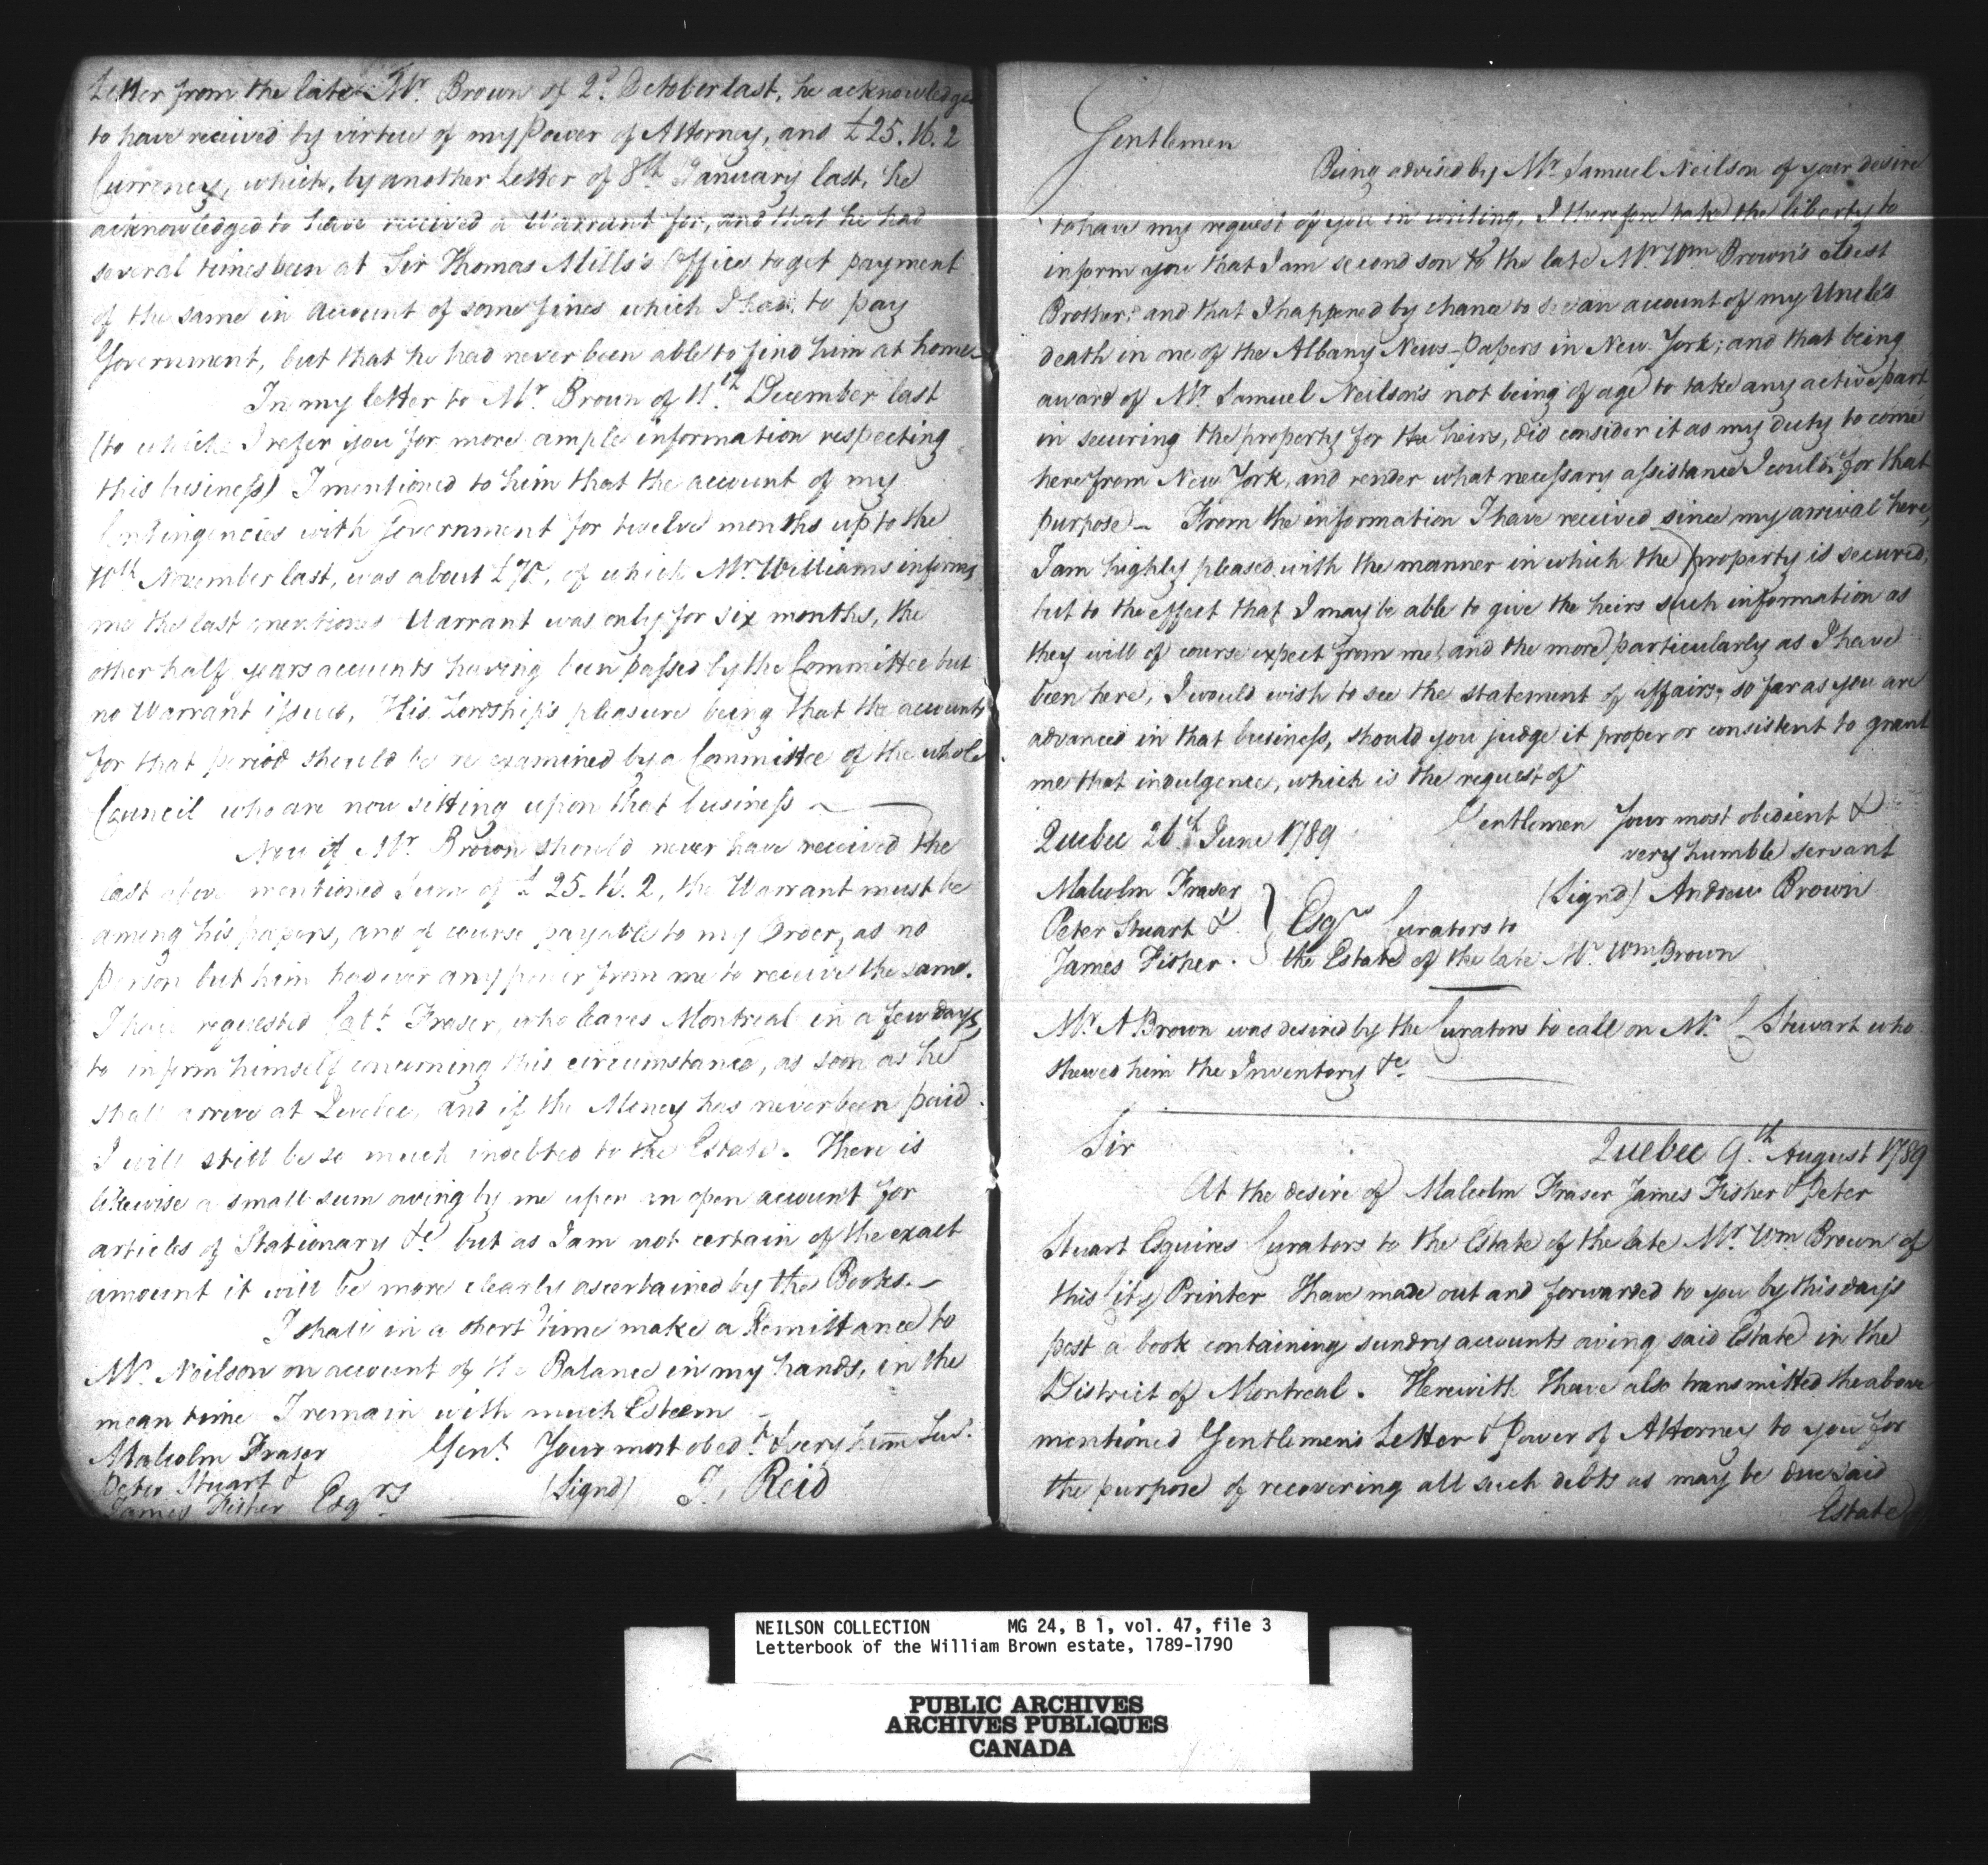 Letter from the late Mr. Brown of 2d. October last, he acknowledges
to have received by virtue of my Power of Attorney, and £25.16.2
Currency, which, by another Letter of 8th January last, he
acknowledged to have received a Warrant for, and that he had
several times been at Sir Thomas Mills's Office to get payment
of the same in Account of some fines which I had to pay
Government, but that he had never been able to find him at home—
In my letter to Mr. Brown of 11th December last
(to which I refer you for more ample information respecting
this business) I mentioned to him that the account of my
Contingencies with Government for twelve months up to the
10th November last, was about £70, of which Mr. Williams informs
me the last mentioned Warrant was only for six months, the
other half years accounts having been passed by the Committee but
no Warrant issued, His Lordship's pleasure being that the accounts
for that period should be re examined by a Committee of the whole
Council who are now sitting upon that business —
Now if Mr. Brown should never have received the
last above mentioned Sum of £25.16.2, the Warrant must be
among his papers, and of course payable to my Order, as no
Person but him had ever any power from me to receive the same.
I have requested Capt. Fraser, who leaves Montreal in a few days,
to inform himself concerning this circumstance, as soon as he
shall arrive at Quebec, and if the Money has never been paid
I will still be so much indebted to the Estate. There is
likewise a small sum owing by me upon an open account for
articles of Stationary &c. but as I am not certain of the exact
amount it will be more clearly ascertained by the Books.—
I shall in a short time make a Remittance to
Mr. Neilson on account of the Balance in my hands, in the
mean time I remain with much Esteem
Malcolm Fraser Gent. Your most obedt. & very hum Servt.
Peter Stuart & (Signd) J. Reid
James Fisher Esqrs
Gentlemen
Being advised by Mr. Samuel Neilson of your desire
to have my request of you in writing, I therefore take the liberty to
inform you that I am second son to the late Mr. Wm Brown's eldest
Brother: and that I happened by chance to see an account of my Uncle's
death in one of the Albany News-Papers in New York; and that being
award of Mr. Samuel Neilson's not being of age to take any active part
in securing the property for the heirs, did consider it as my duty to come
here from New York, and render what necessary assistance I could for that
purpose— From the information I have received since my arrival here,
I am highly pleased with the manner in which the property is secured;
but to the effect that I may be able to give the heirs such information as
they will of course expect from me, and the more particularly as I have
been here, I would wish to see the statement of affairs, so far as you are
advanced in that business, should you judge it proper or consistent to grant
me that indulgence, which is the request of
Gentlemen Your most obedient &
Quebec 26th June 1789
very humble servant
Malcolm Fraser (Signd) Andrew Brown
Peter Stuart & } Esqrs Curators to
James Fisher. the Estate of the late Mr. Wm Brown
Mr. A Brown was desired by the Curators to call on Mr. C Stewart who
shewed him the Inventory &c.
Sir Quebec 9th. August 1789
At the desire of Malcolm Fraser James Fisher & Peter
Stuart Esquires Curators to the Estate of the late Mr. Wm Brown of
this City Printer I have made out and forwarded to you by this day's
post a book containing sundry accounts owing said Estate in the
District of Montreal. Herewith I have also transmitted the above
mentioned Gentlemen's Letter & Power of Attorney to you for
the purpose of recovering all such debts as may be due said
Estate
NEILSON COLLECTION MG 24, B 1, vol. 47, file 3
Letterbook of the William Brown estate, 1789-1790
PUBLIC ARCHIVES
ARCHIVES PUBLIQUES
CANADA